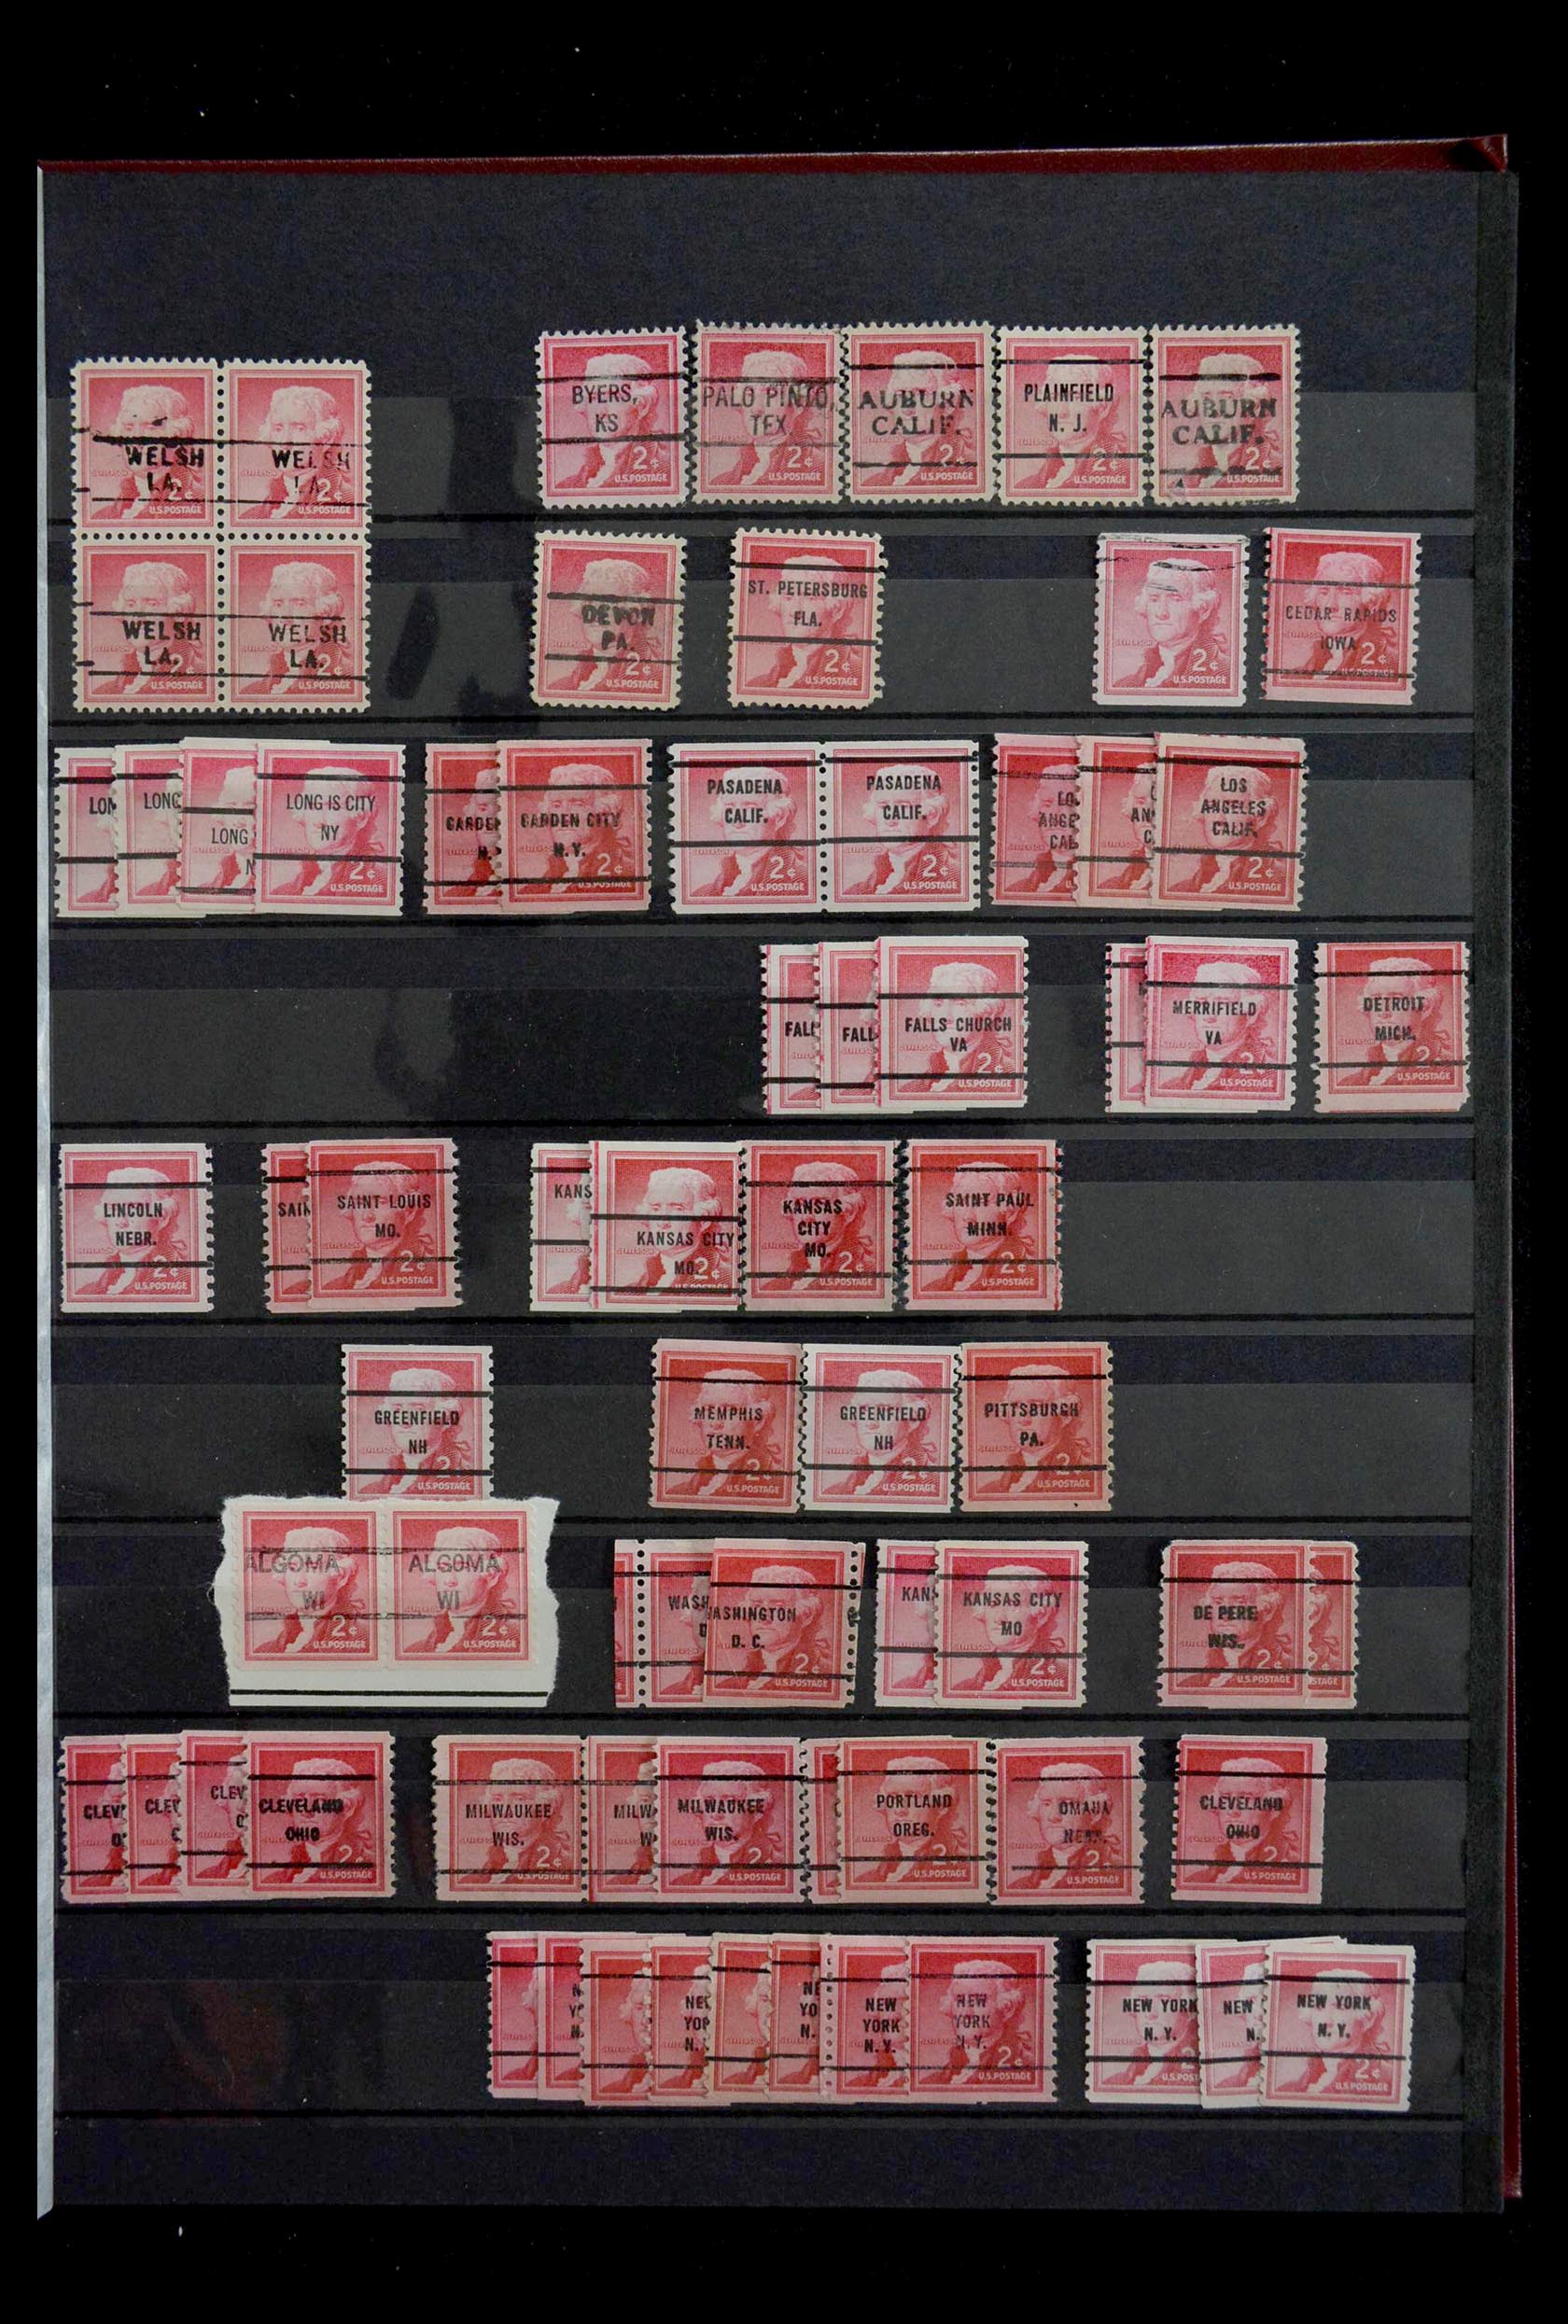 WELSH
LA.
2¢
U.S.POSTAGE
WELSH
LA.
2¢
U.S.POSTAGE
WELSH
LA.
2¢
U.S.POSTAGE
WELSH
LA.
2¢
U.S.POSTAGE
BYERS,
KS
2¢
U.S.POSTAGE
PALO PINTO,
TEX.
2¢
U.S.POSTAGE
AUBURN
CALIF.
2¢
U.S.POSTAGE
PLAINFIELD
N. J.
2¢
U.S.POSTAGE
AUBURN
CALIF.
2¢
U.S.POSTAGE
DEVON
PA.
2¢
U.S.POSTAGE
ST. PETERSBURG
FLA.
2¢
U.S.POSTAGE
2¢
U.S.POSTAGE
CEDAR RAPIDS
IOWA
2¢
U.S.POSTAGE
LON
LONG
LONG
N
LONG IS CITY
NY
2¢
U.S.POSTAGE
GARDE
N.
GARDEN CITY
N.Y.
2¢
U.S.POSTAGE
PASADENA
CALIF.
2¢
U.S.POSTAGE
PASADENA
CALIF.
2¢
U.S.POSTAGE
LO
ANGE
CAL
AN
C
LOS
ANGELES
CALIF.
2¢
U.S.POSTAGE
FALL
FALL
FALLS CHURCH
VA
2¢
U.S.POSTAGE
MERRIFIELD
VA
2¢
U.S.POSTAGE
DETROIT
MICH.
2¢
U.S.POSTAGE
LINCOLN
NEBR.
2¢
U.S.POSTAGE
SAIN
SAINT LOUIS
MO.
2¢
U.S.POSTAGE
KANS
KANSAS CITY
MO.
2¢
U.S.POSTAGE
KANSAS
CITY
MO.
2¢
U.S.POSTAGE
SAINT PAUL
MINN.
2¢
U.S.POSTAGE
GREENFIELD
NH
2
U.S.POSTAGE
MEMPHIS
TENN.
2¢
U.S.POSTAGE
GREENFIELD
NH
2¢
U.S.POSTAGE
PITTSBURGH
PA.
2¢
U.S.POSTAGE
ALGOMA
WI
2¢
U.S.POSTAGE
ALGOMA
WI
2¢
U.S.POSTAGE
WASH
D
WASHINGTON
D. C.
2¢
U.S.POSTAGE
KANS
KANSAS CITY
MO
2¢
U.S.POSTAGE
DE PERE
WIS.
2¢
U.S.POSTAGE
2¢
STAGE
CLEV
O
CLEV
CLEV
CLEVELAND
OHIO
2¢
U.S.POSTAGE
MILWAUKEE
WIS.
2¢
U.S.POSTAGE
MILW
W
MILWAUKEE
WIS.
2¢
U.S.POSTAGE
PORTLAND
OREG.
2¢
U.S.POSTAGE
OMAHA
NEBR.
2¢
U.S.POSTAGE
CLEVELAND
OHIO
2
U.S.POSTAGE
N
Y
N.
NEW
YOR
N.
NE
YO
N.
NEW
YORK
N.Y.
NEW
YORK
N.Y.
2¢
U.S.POSTAGE
NEW YORK
N. Y.
2
U.S.POS
NEW
N.
NEW YORK
N. Y.
2¢
U.S.POSTAGE